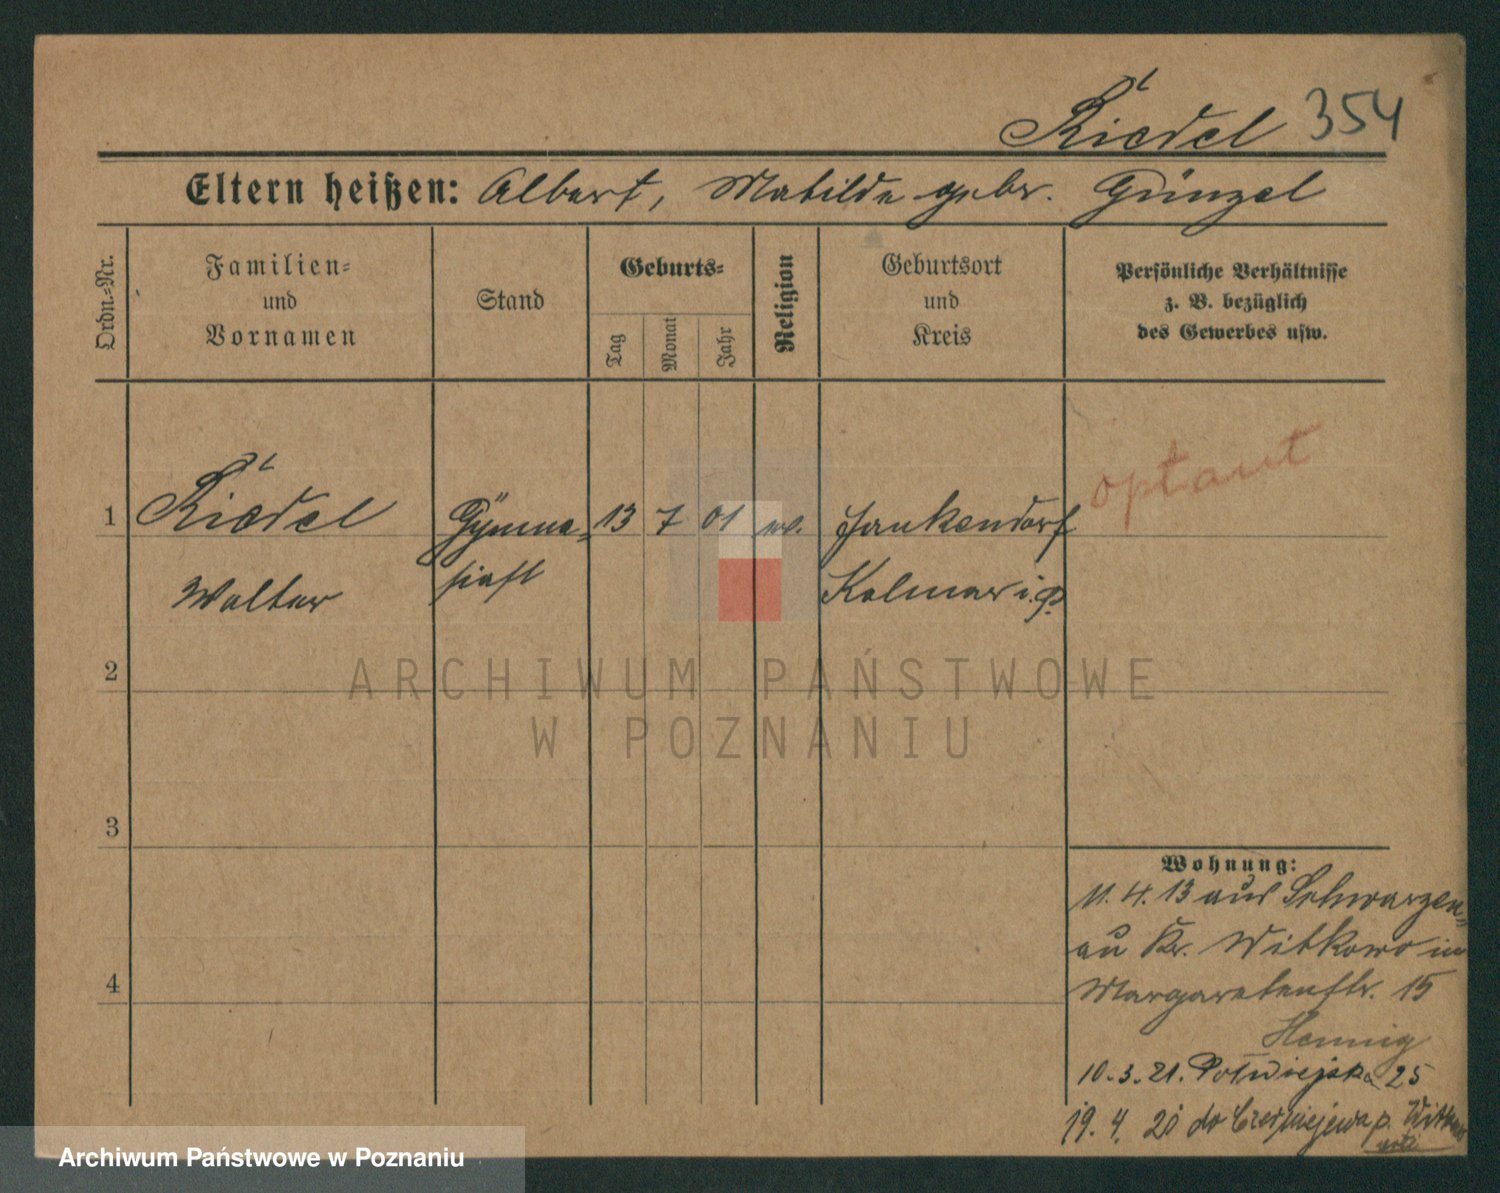 Riedel 354
Eltern heißen: Albert, Matilde gebr. Günzel
Ordn.-Nr.
Familien-
und
Vornamen
Stand
Geburts-
Tag
Monat
Jahr
Religion
Geburtsort
und
Kreis
Persönliche Verhältnisse
z. B. bezüglich
des Gewerbes usw.
optant
1 Riedel Gymna- 13 7 01 ev. Jankendorf
Walter siast Kolmar i. P.
2
ARCHIWUM PAŃSTWOWE
W POZNANIU
3
Wohnung:
11. 4. 13 aus Schwarzen-
au Kr. Witkowo in
Margaretenstr. 15
Hennig
4
10.3.21. Półwiejska 25
19. 4. 21 do Czerniejewa p.
Archiwum Państwowe w Poznaniu